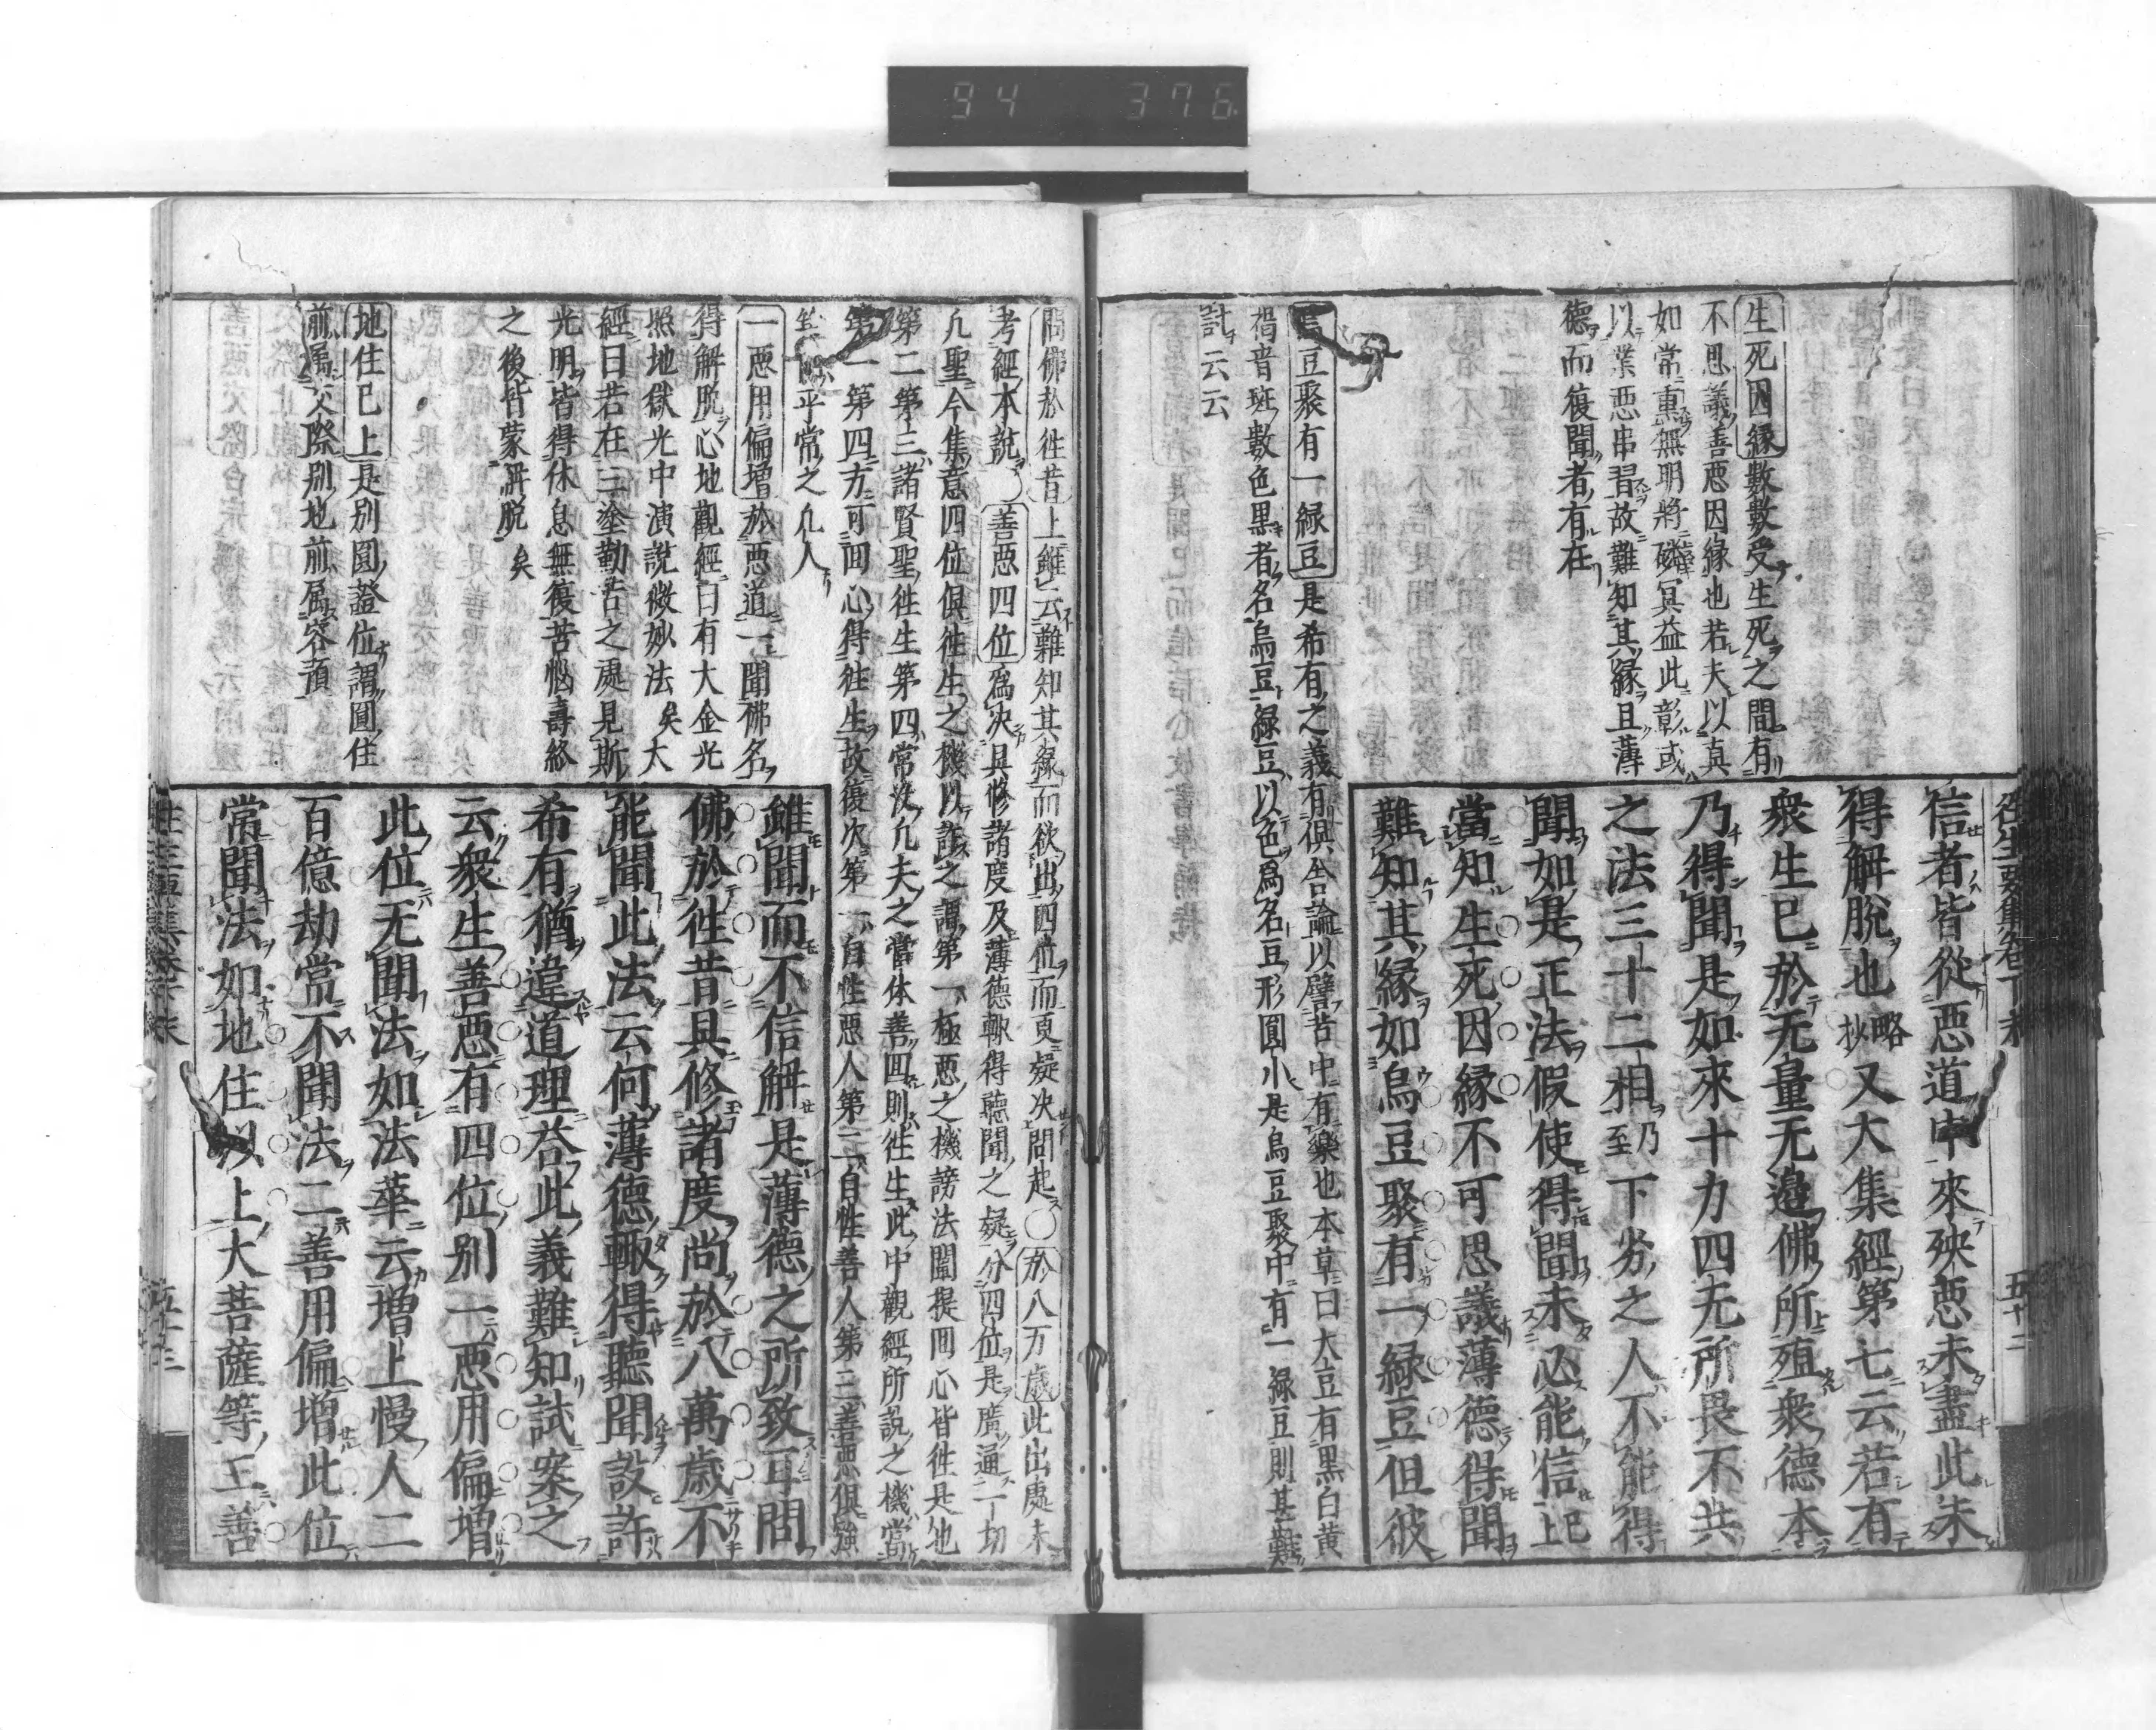 94 376
往生要集卷下末
五十二
生死因縁數數受生死之間有
不思議善惡因縁也若夫以真
如常熏無明將磷冥益此彰或
以業惡串習故難知其縁且薄
德而復聞者有在
豆聚有一緑豆是希有之義有俱舍論以譬苦中有樂也本草曰大豆有黒白黄
褐青斑數色黒者名烏豆緑豆以色爲名豆形圓小是烏豆聚中有一緑豆則甚難
討云云
信者皆從惡道中來殃惡未盡此未
得解脱也略抄又大集經第七云若有
衆生已於无量无邊佛所殖衆德本
乃得聞是如來十力四无所畏不共
之法三十二相乃至下劣之人不能得
聞如是正法假使得聞未必能信已上
當知生死因縁不可思議薄德得聞
難知其縁如烏豆聚有一緑豆但彼
問佛於徃昔上雖云難知其縁而欲出四位而更疑决問起○於八万歳此出處未
考經本説○善惡四位爲决具修諸度及薄德輙得聽聞之疑分四位是廣通一切
凡聖今集意四位俱徃生之機以許之謂第一極惡之機謗法闡提回心皆徃是也
第二第三諸賢聖徃生第四常没凡夫之當体善回則徃生此中觀經所説之機當
第一第四方可回心得徃生故復次第一自性惡人第二自性善人第三善惡俱強
平常之凡人
一惡用偏增於惡道一聞佛名
得解脱心地觀經曰有大金光
照地獄光中演説微妙法矣大
經曰若在三塗勤苦之處見斯
光明皆得休息無復苦惱壽終
之後皆蒙解脱矣
地住已上是别圓證位謂圓住
前属交際别地前属容預
雖聞而不信解是薄德之所致耳問
佛於徃昔具修諸度尚於八萬歳不
能聞此法云何薄德輙得聽聞設許
希有猶違道理荅此義難知試案之
云衆生善惡有四位别一惡用偏增
此位无聞法如法華云增上慢人二
百億劫常不聞法二善用偏增此位
常聞法如地住以上大菩薩等三善